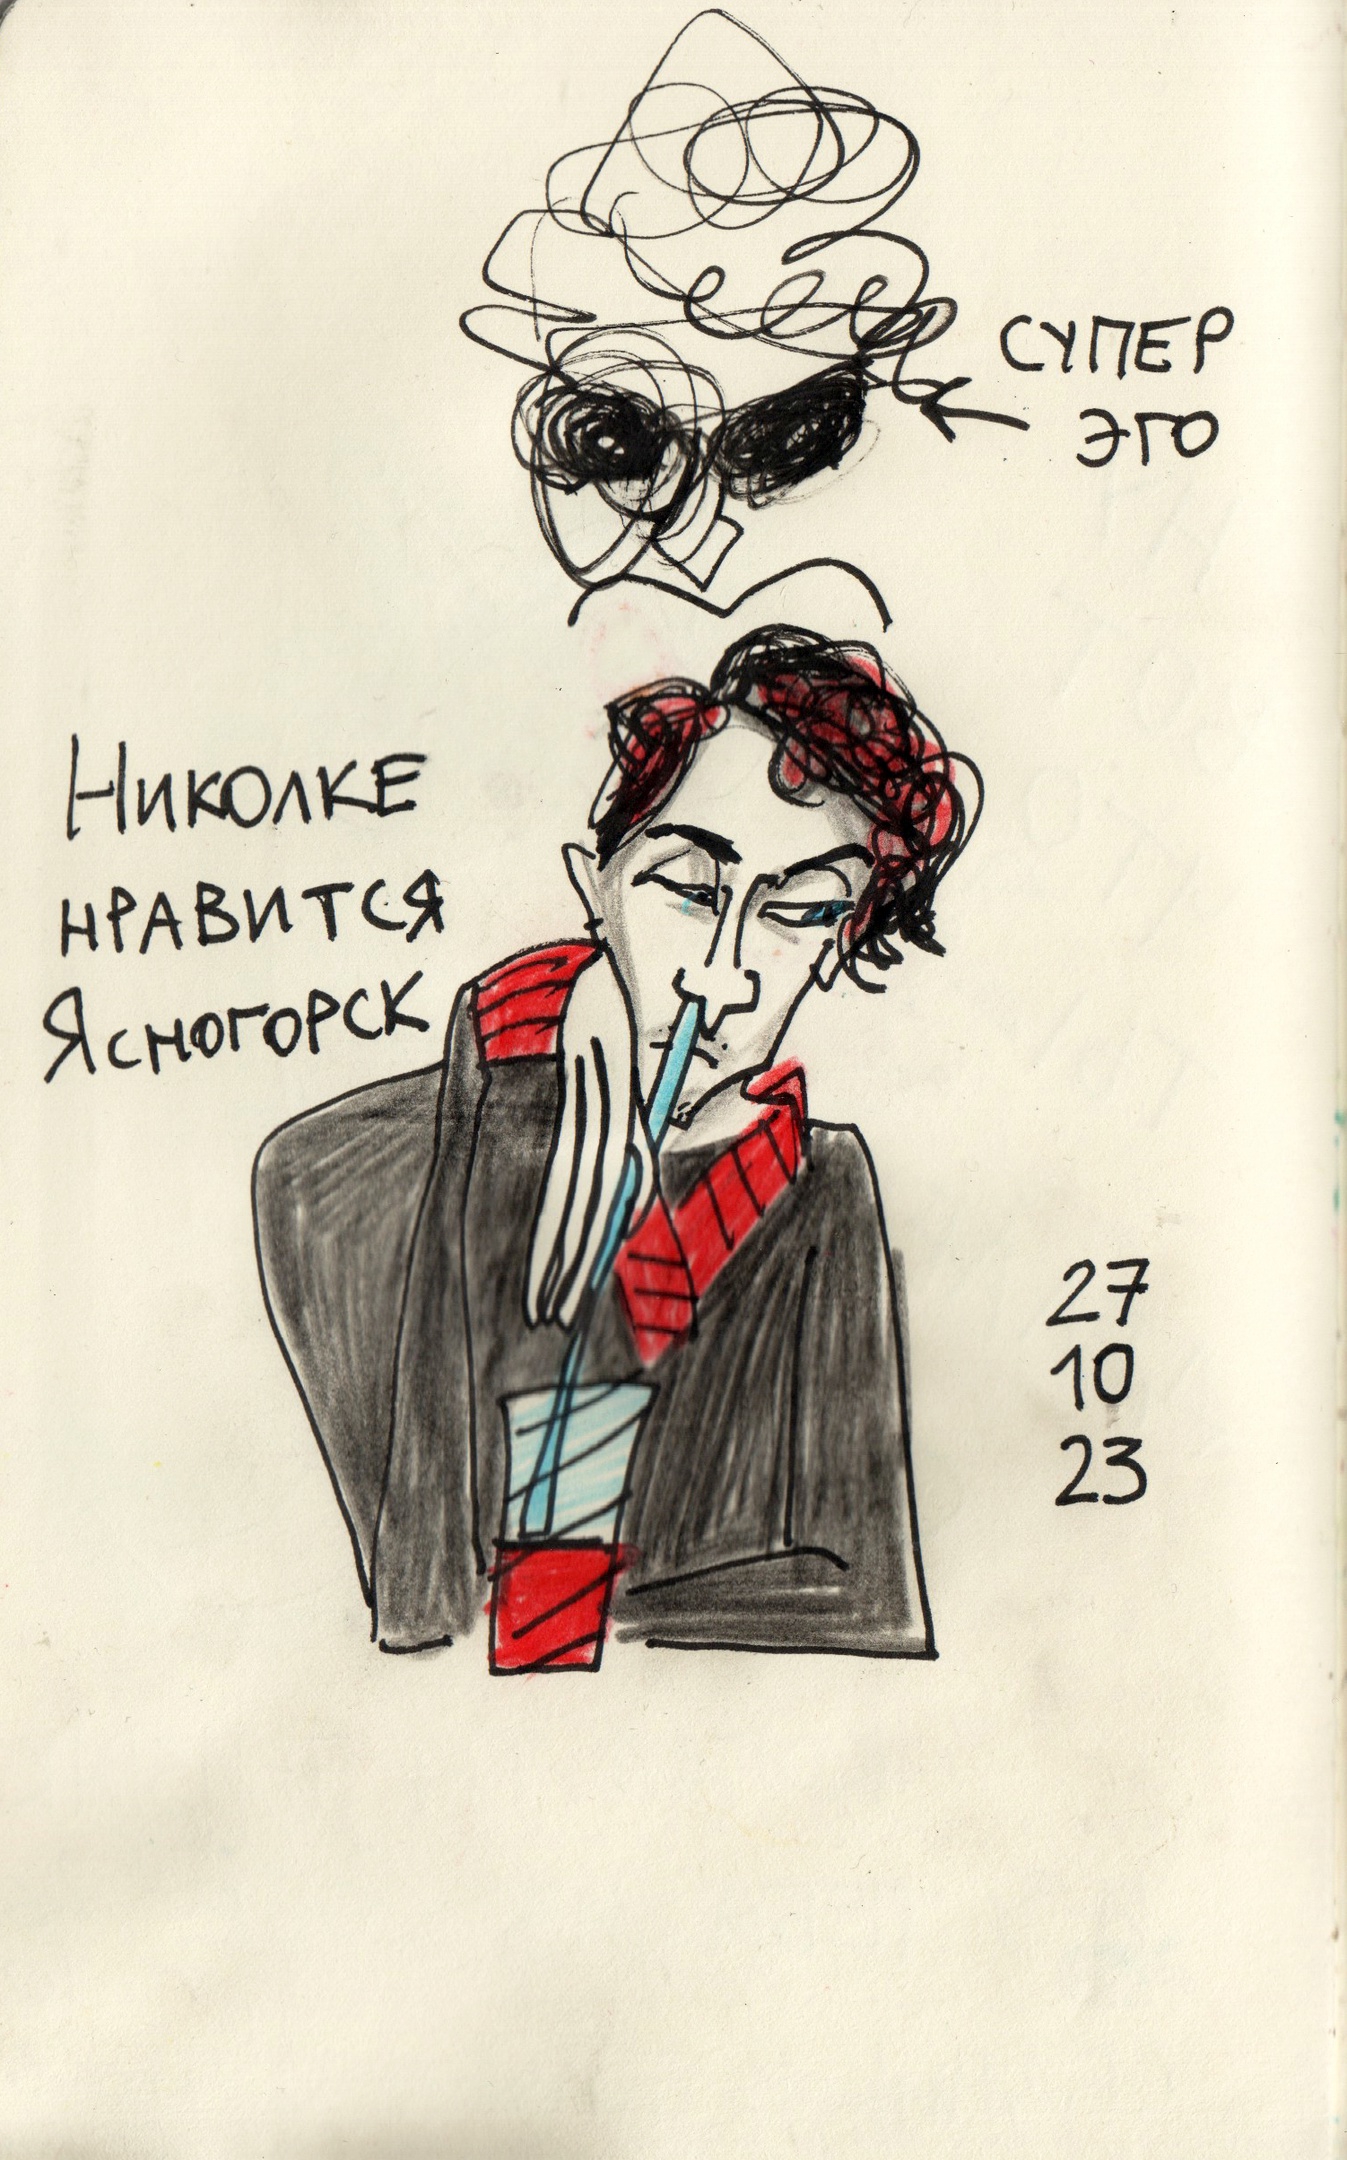 СУПЕР
ЭГО
НИКОЛКЕ
НРАВИТСЯ
ЯСНОГОРСК
27
10
23